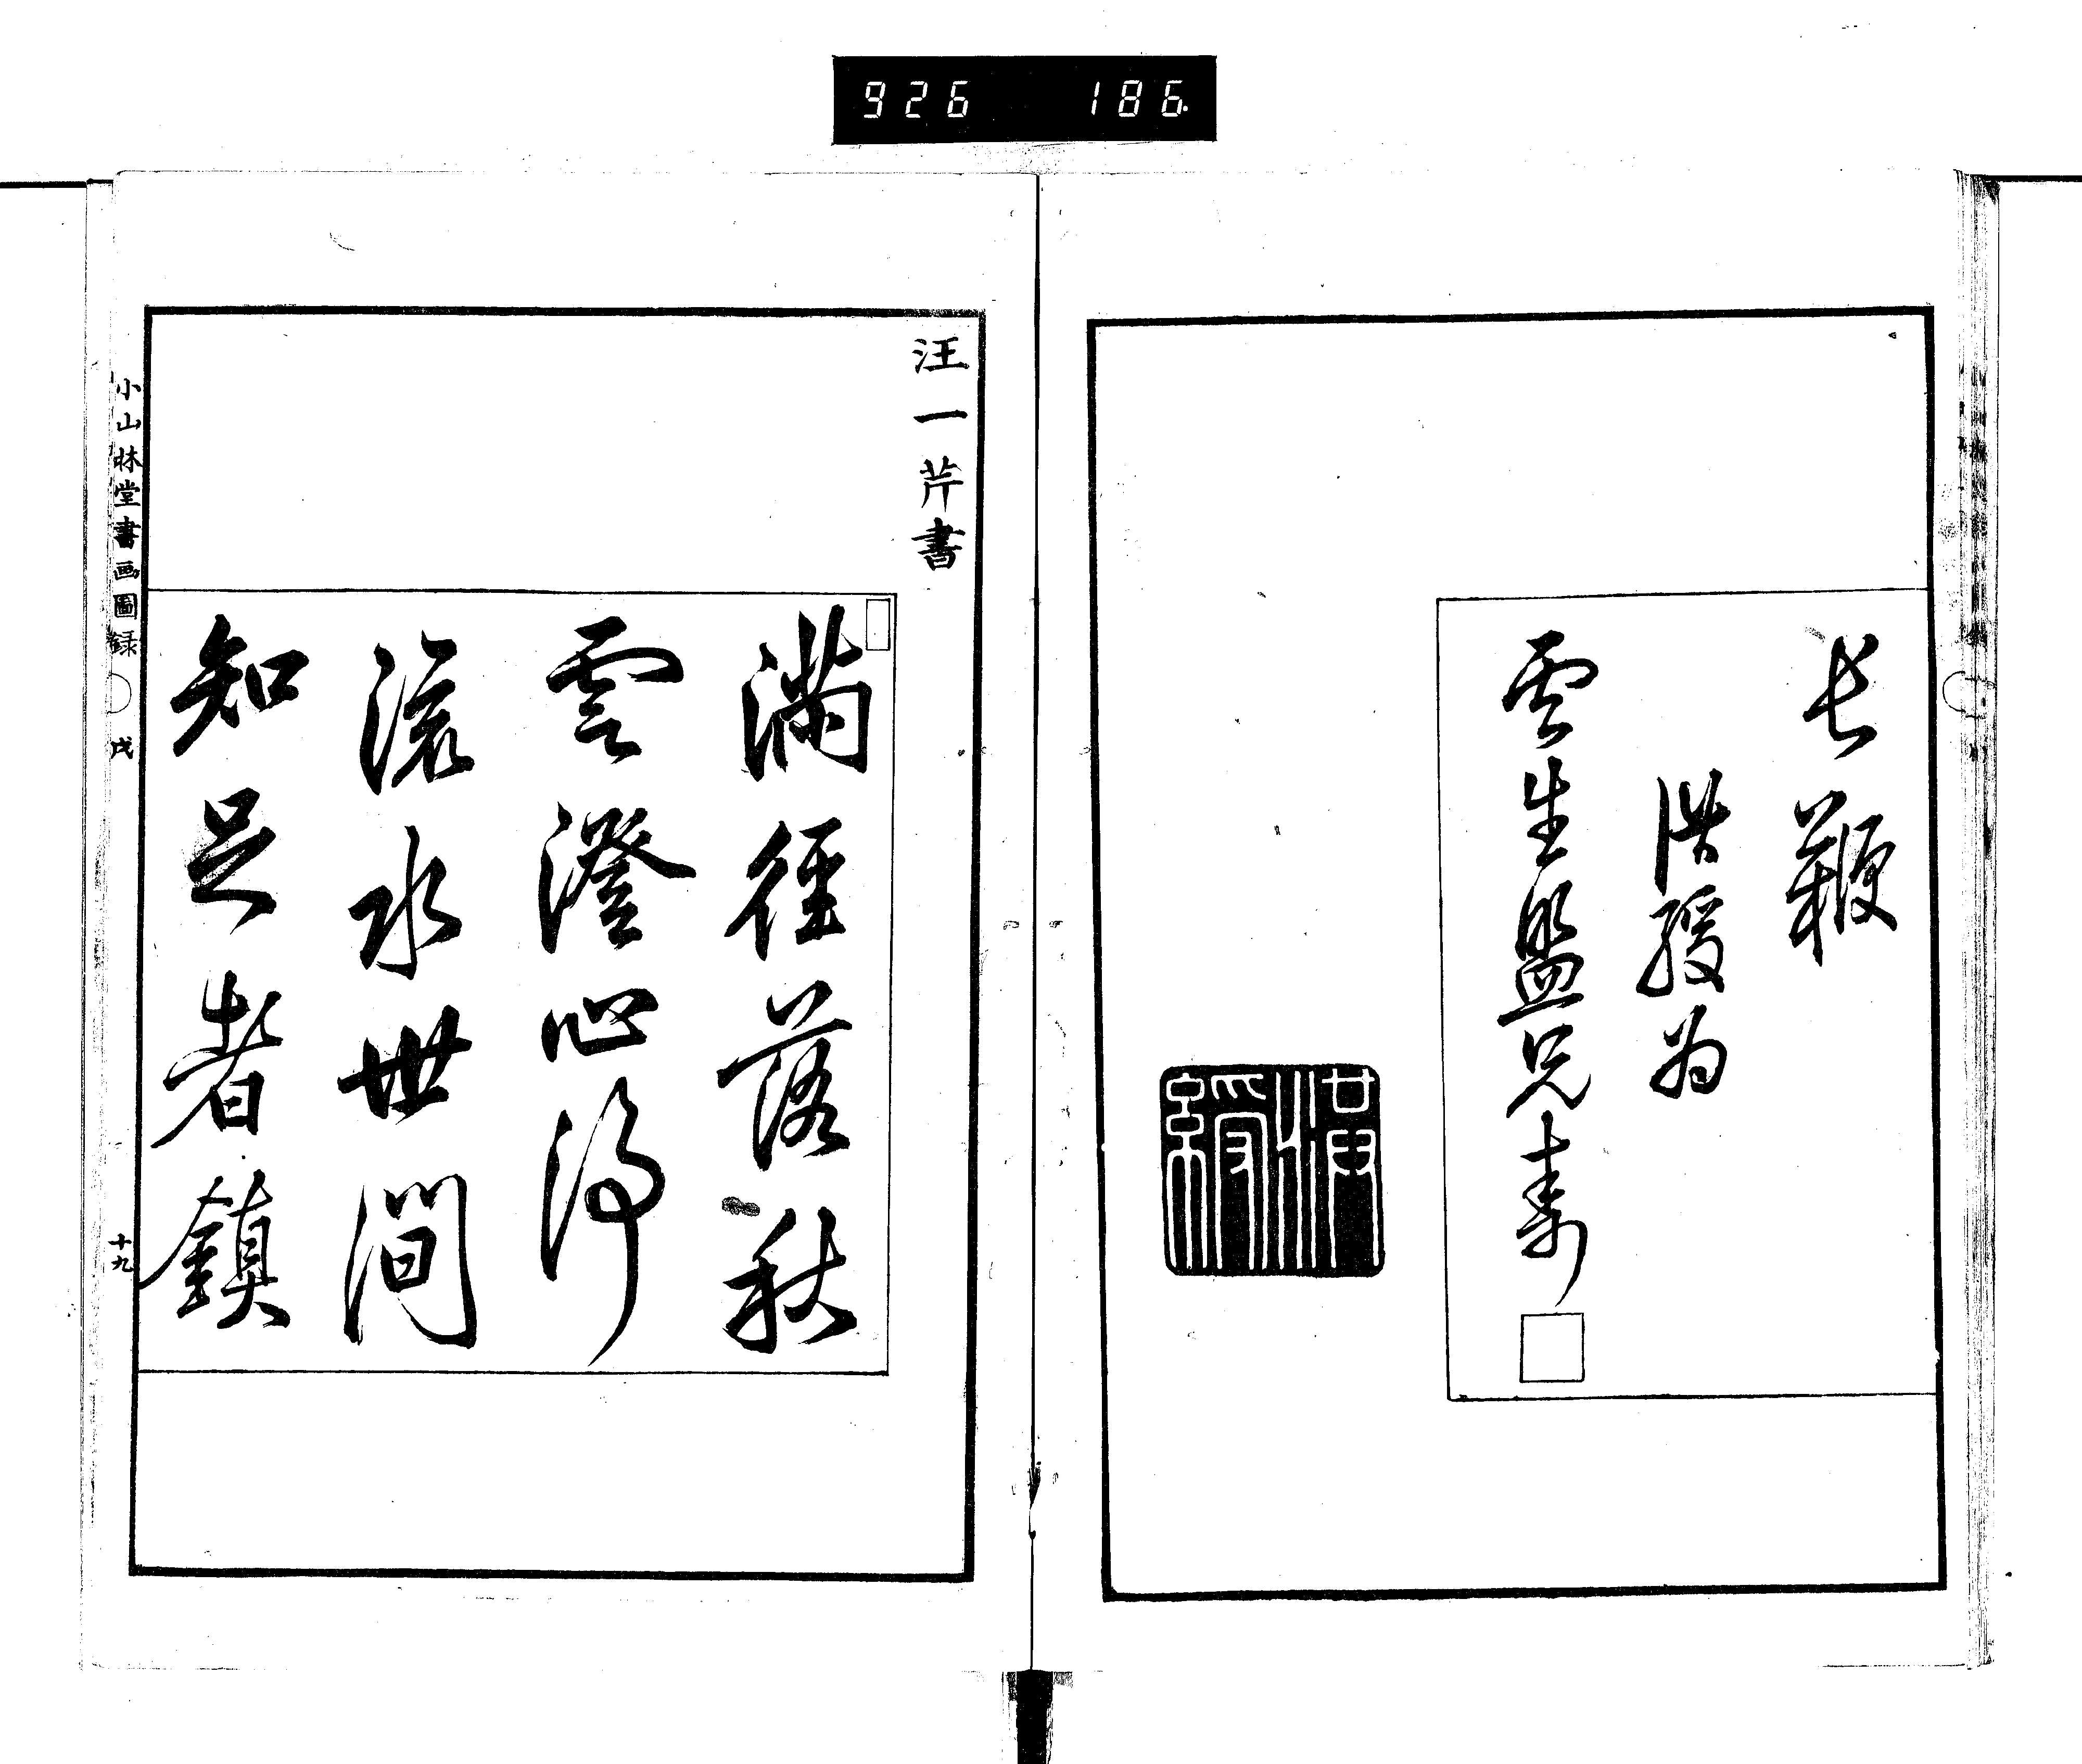 926 186
長鞭
洪綬為
雲生盟兄壽
漢綬
汪一芹書
滿徑落秋
雲澄心淨
流水世間
知足者鎮
小山林堂書画圖録 戌 十九